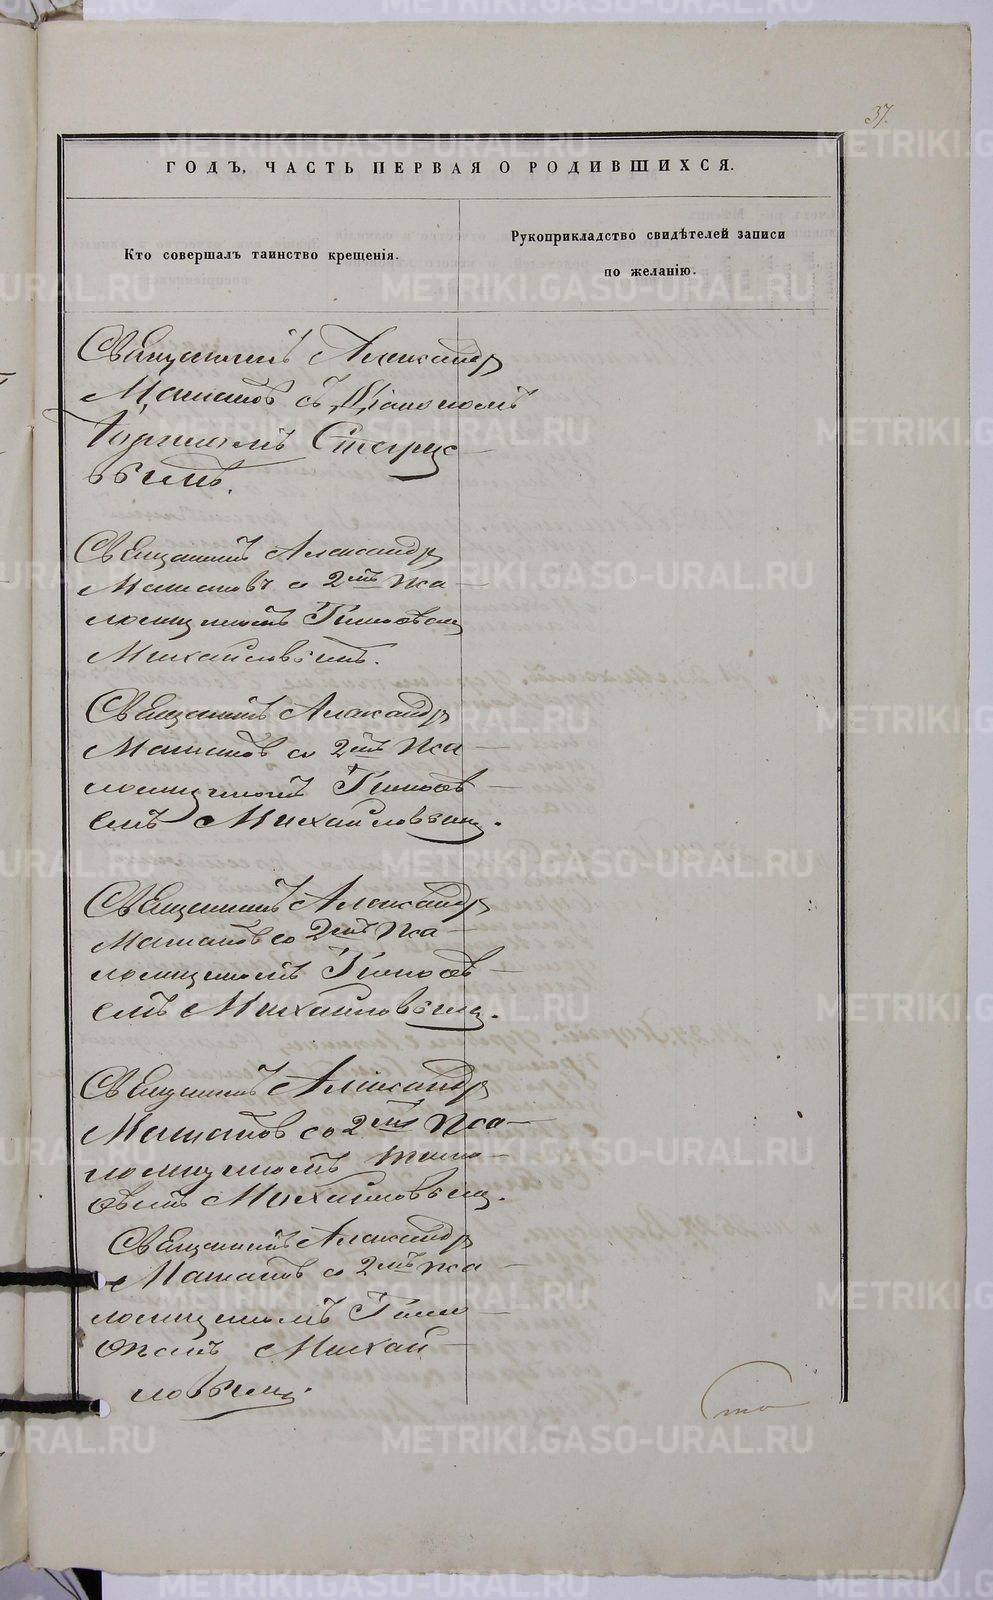 37.
ГОДЪ, ЧАСТЬ ПЕРВАЯ О РОДИВШИХСЯ.
Кто совершалъ таинство крещенія.
Рукоприкладство свидѣтелей записи
по желанію.
Священникъ Александръ
съ Діакономъ
Священникъ Александръ
со 2мъ Пса-
ломщикомъ Тимоѳеем
Михайловымъ.
Священникъ Александръ
со 2мъ Пса-
ломщикомъ Тимоѳе-
емъ Михайловымъ.
Священникъ Александръ
со 2мъ Пса-
ломщикомъ Тимоѳе-
емъ Михайловымъ.
Священникъ Александръ
со 2мъ Пса-
ломщикомъ Тимо-
ѳеемъ Михайловымъ.
Священникъ Александръ
со 2мъ Пса-
ломщикомъ Тимо-
ѳеемъ Михай-
ловымъ.
METRIKI.GASO-URAL.RU